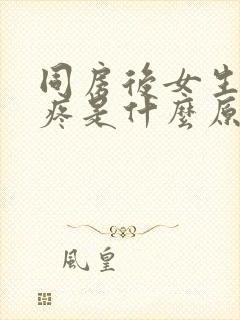 同房後女生
疼是什麼原
風皇